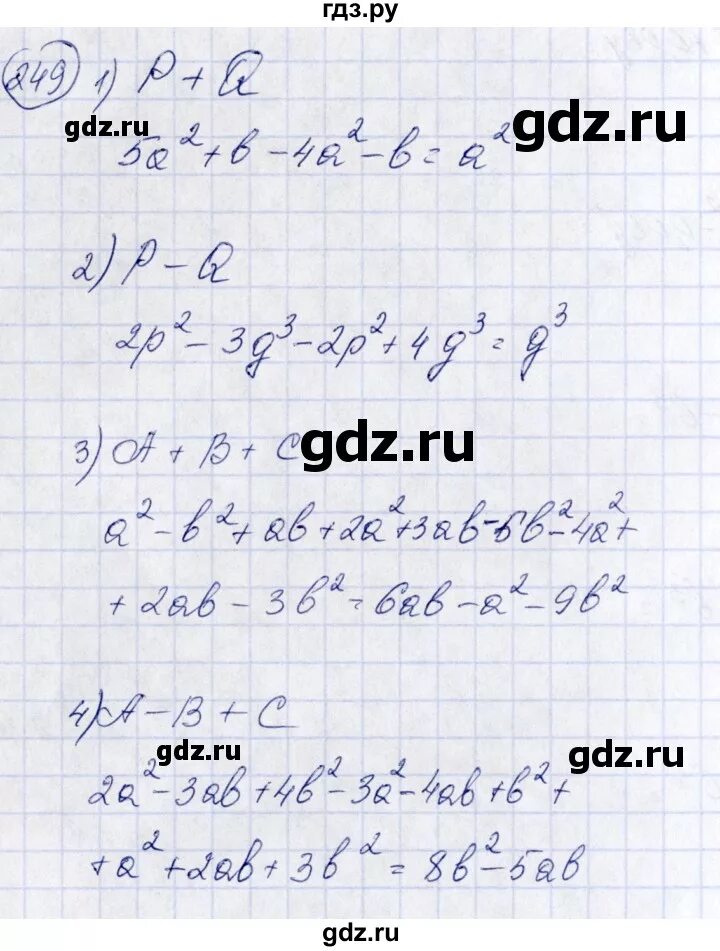 гдз.ру
249 1) P + Q
gdz.ru
5a² + b - 4a² - b = a²
gdz.ru
2) P - Q
2p² - 3g³ - 2p² + 4g³ = g³
3) A + B + C
gdz.ru
a² - b² + ab + 2a² + 3ab - 5b² - 4a² +
+ 2ab - 3b² = 6ab - a² - 9b²
4) A - B + C
gdz.ru
gdz.ru
2a² - 3ab + 4b² - 3a² - 4ab + b² +
+ a² + 2ab + 3b² = 8b² - 5ab
gdz.ru